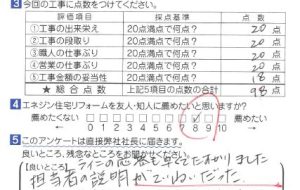 3 今回の工事に点数をつけてください。
評価項目 採点基準 点数
①工事の出来栄え 20点満点で何点? 20点
②工事の段取り 20点満点で何点? 20点
③職人の仕事ぶり 20点満点で何点? 20点
④営業の仕事ぶり 20点満点で何点? 20点
⑤工事金額の妥当性 20点満点で何点? 18点
★総合点数 上記5項目の点数の合計 98点
4 エネジン住宅リフォームを友人・知人に薦めたいと思いますか?
薦めたくない 薦めたい
0 1 2 3 4 5 6 7 8 9 10
5 このアンケートは直接弊社社長に届きます。
良いところ、残念なところをお聞かせください。
【良いところ】 ラインの応答として わかりました
担当者の説明がていねいだった。